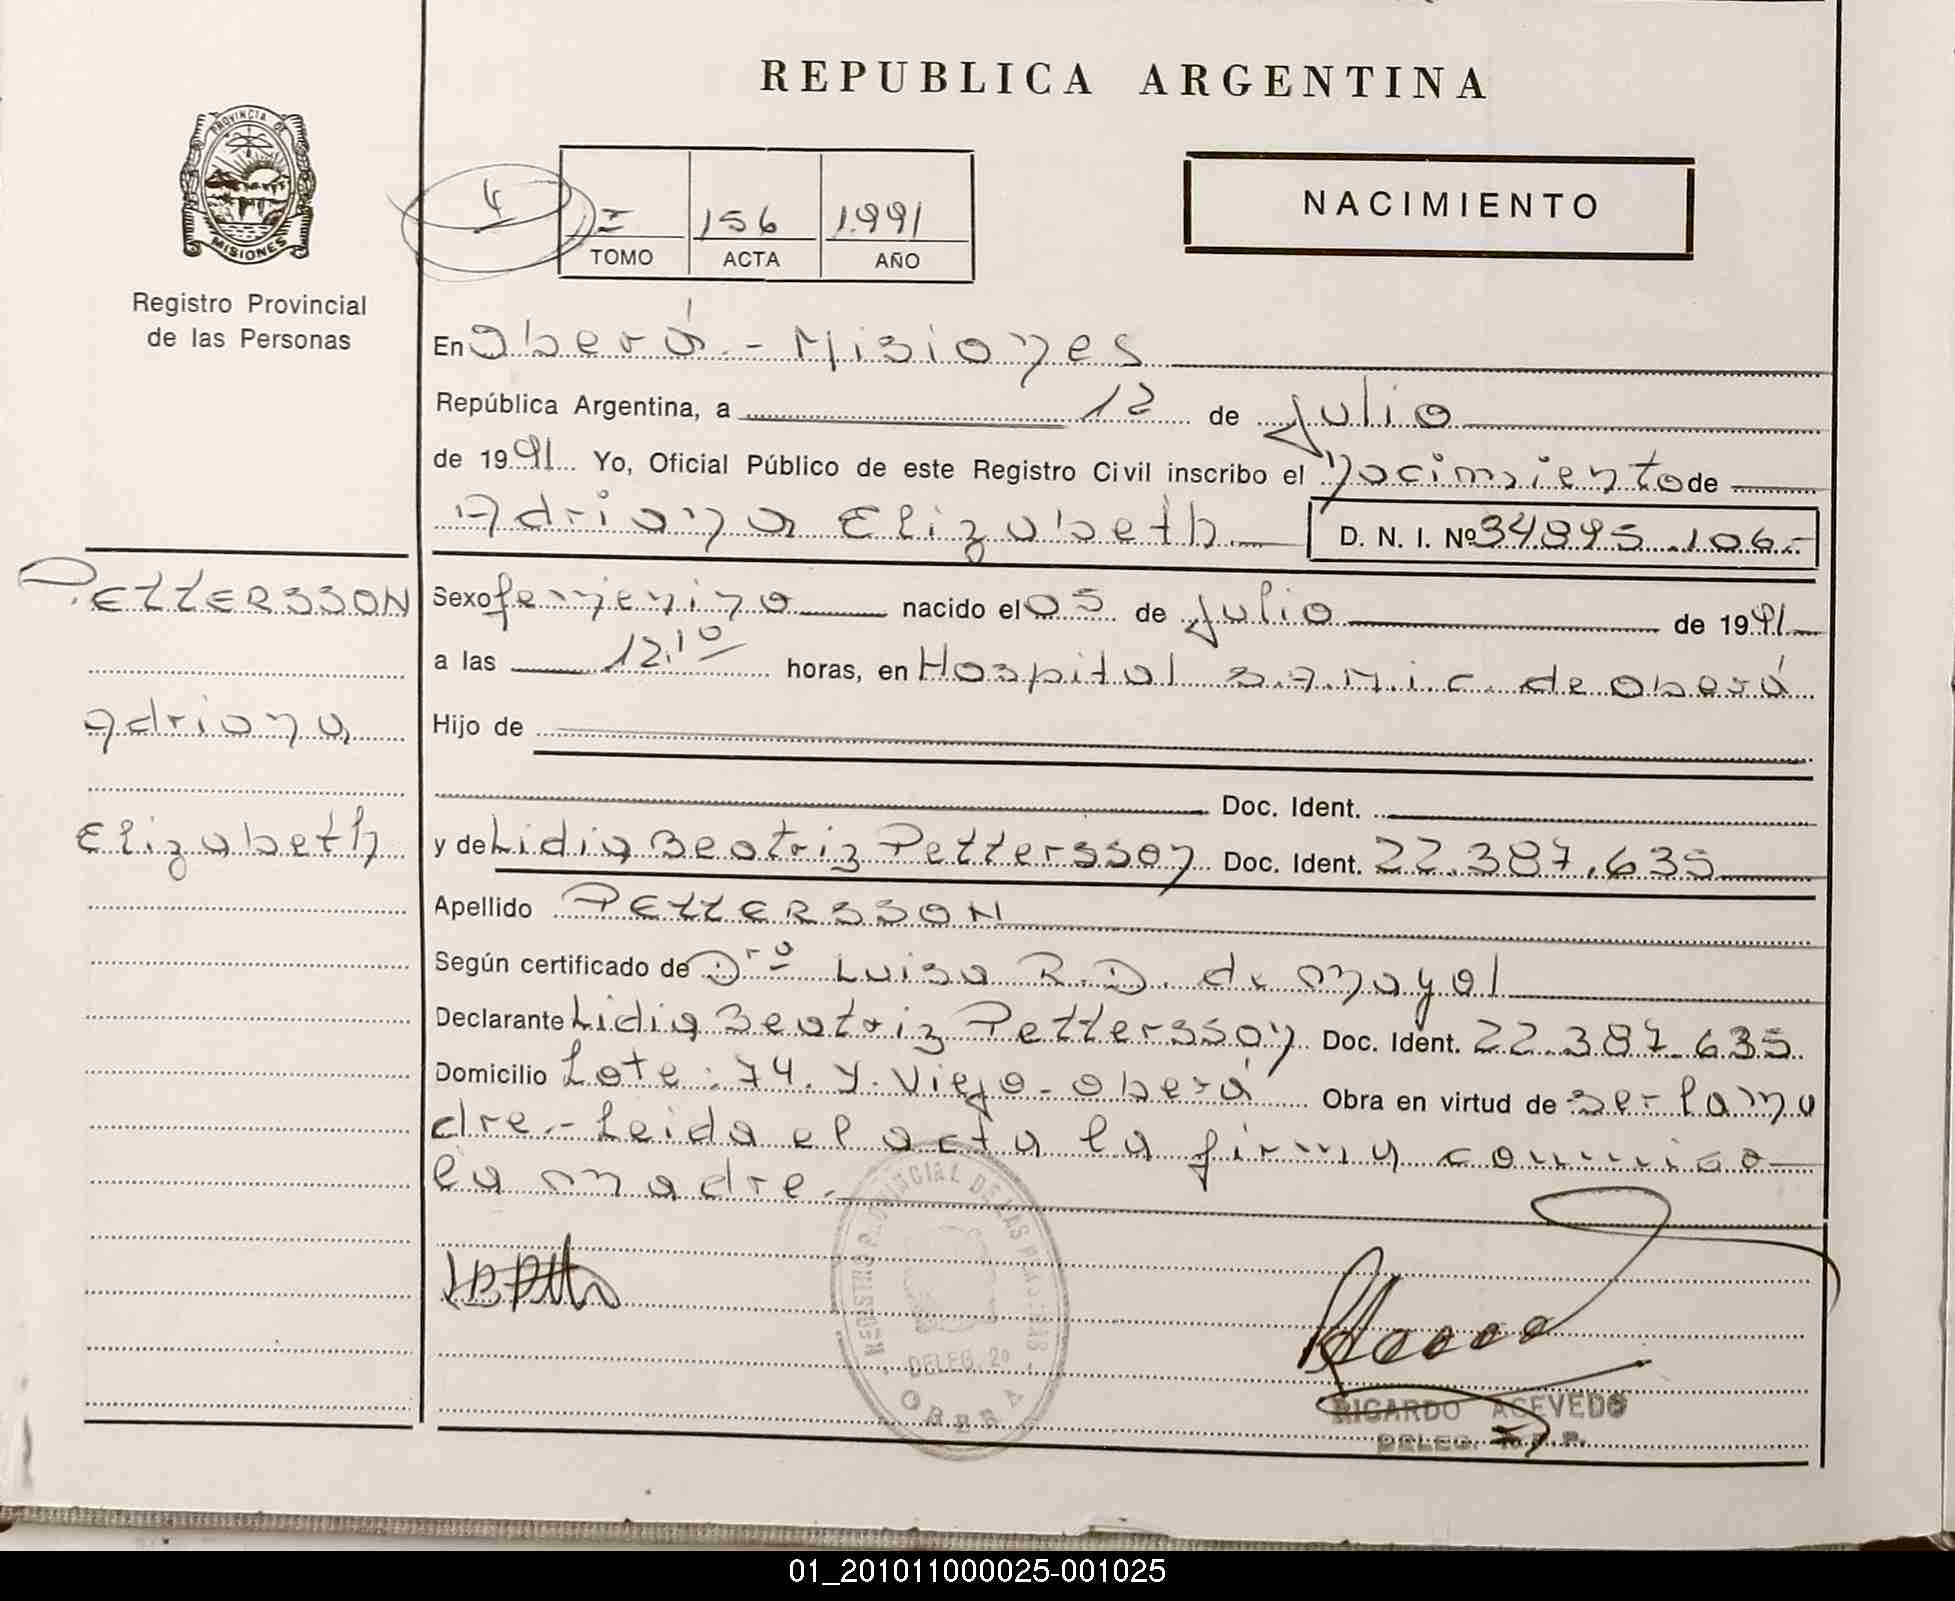 REPUBLICA ARGENTINA
PROVINCIA DE
MISIONES
Registro Provincial
de las Personas
I 156 1.991
TOMO ACTA AÑO
NACIMIENTO
En Oberá.- Misiones
República Argentina, a 12 de Julio
de 1991 Yo, Oficial Público de este Registro Civil inscribo el Nacimiento de
Adriana Elizabeth D. N. I. Nº 34.895.106.-
PETTERSSON
Adriana
Elizabeth
Sexo femenino nacido el 05 de Julio de 1991
a las 12,10 horas, en Hospital S.A.M.i.C. de Oberá
Hijo de
Doc. Ident.
y de Lidia Beatriz Pettersson Doc. Ident. 22.387.635
Apellido PETTERSSON
Según certificado de Drª Luisa R.D. de Mayol
Declarante Lidia Beatriz Pettersson Doc. Ident. 22.387.635
Domicilio Lote: 74. Y. Viejo - Oberá Obra en virtud de ser la ma
dre.- Leida el acta la firma conmigo
la madre.-
REGISTRO PROVINCIAL DE LAS PERSONAS
DELEG. 2º
OBERA
RICARDO ACEVEDO
DELEG. R.P.P.
01_201011000025-001025